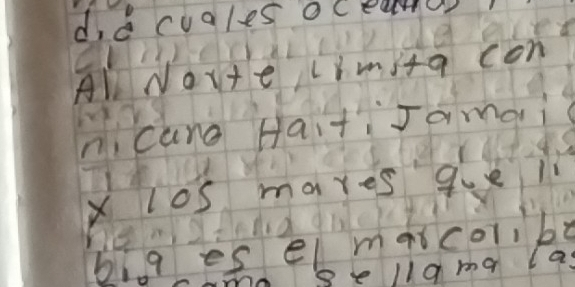 d,á cuales oceanos
Al Norte limita con
nicano Haiti Jamai
y los mares que li
bia es el mar coli be
como se llama las